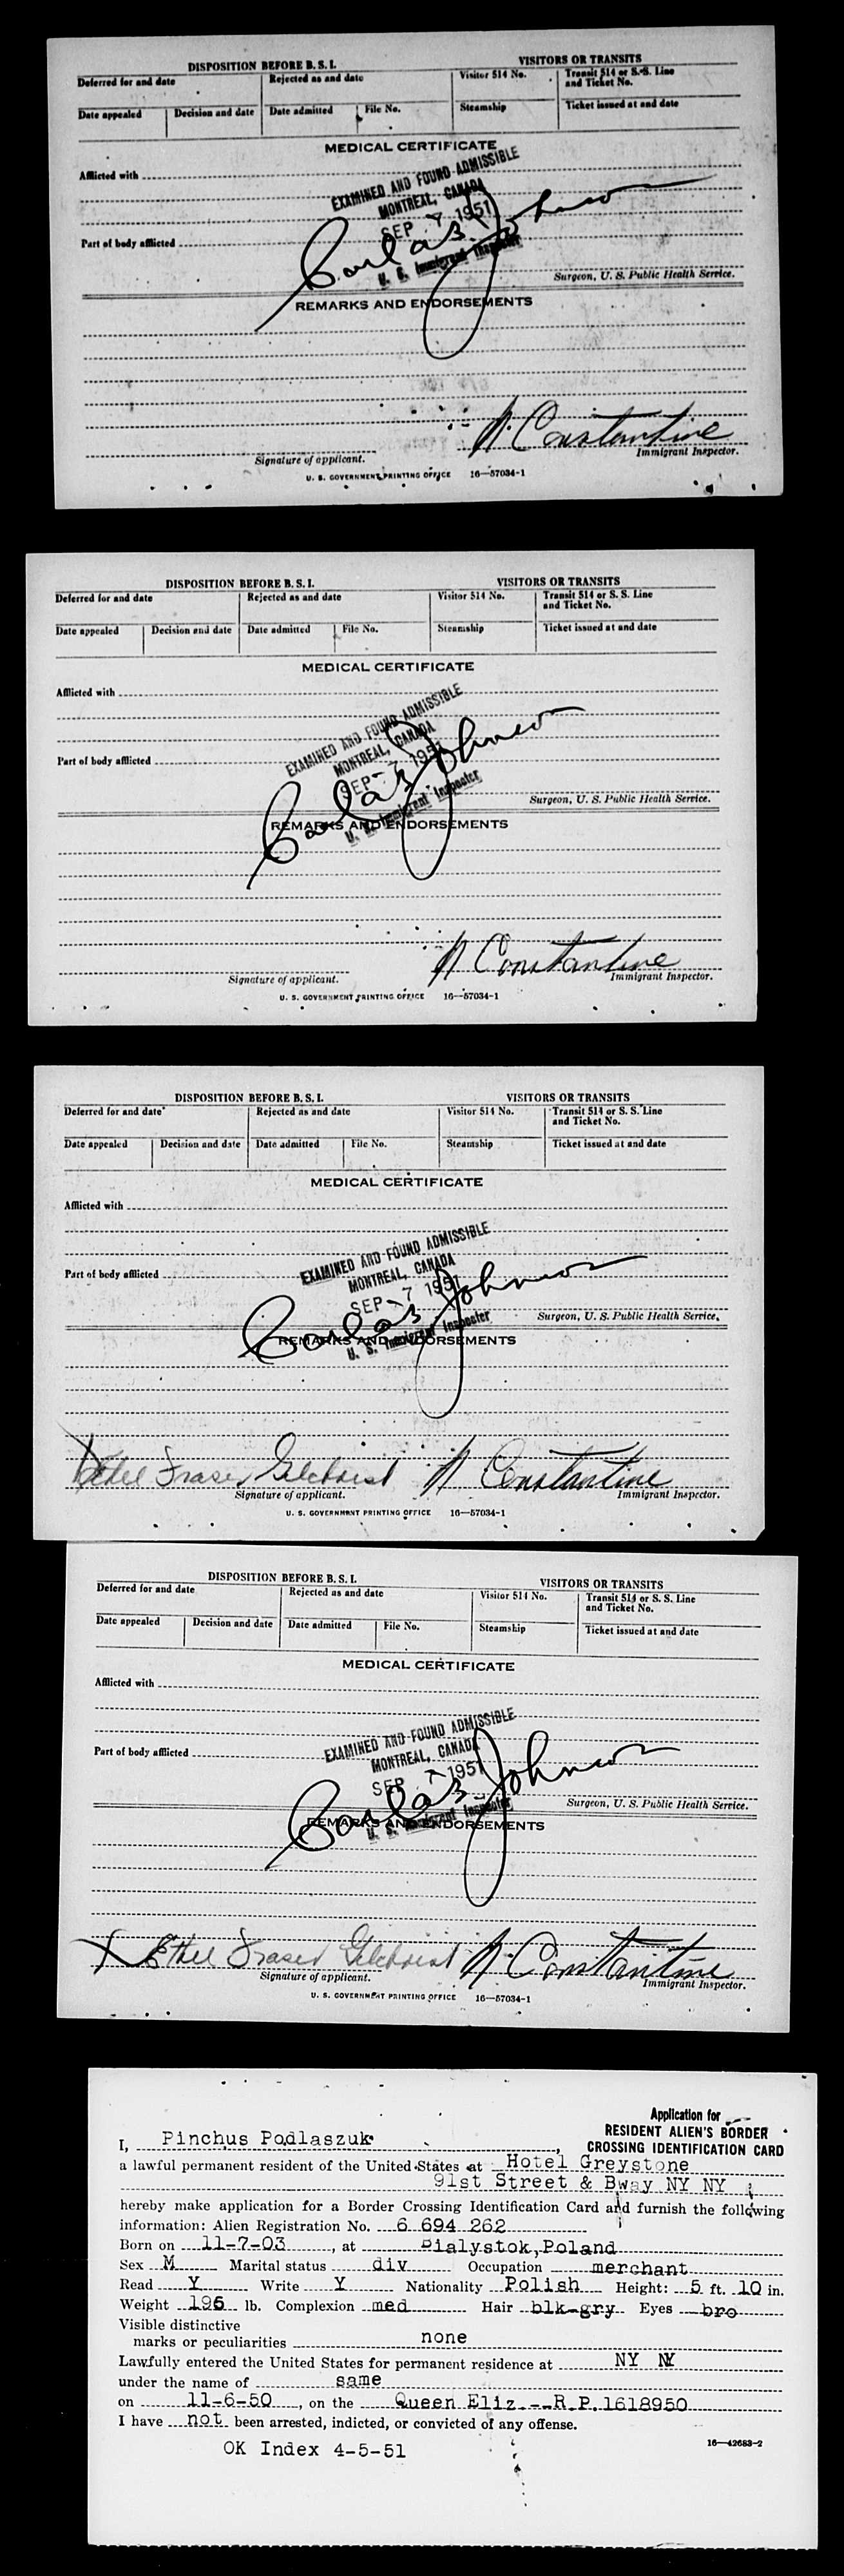 DISPOSITION BEFORE B. S. I. VISITORS OR TRANSITS
Deferred for and date Rejected as and date Visitor 514 No. Transit 514 or S. S. Line and Ticket No.
Date appealed Decision and date Date admitted File No. Steamship Ticket issued at and date
MEDICAL CERTIFICATE
Afflicted with
EXAMINED AND FOUND ADMISSIBLE
MONTREAL, CANADA
SEP 7 1951
U. S. Immigrant Inspector
Part of body afflicted
Johnson
Surgeon, U. S. Public Health Service.
REMARKS AND ENDORSEMENTS
N. Constantine
Signature of applicant. Immigrant Inspector.
U. S. GOVERNMENT PRINTING OFFICE 16—57034-1
DISPOSITION BEFORE B. S. I. VISITORS OR TRANSITS
Deferred for and date Rejected as and date Visitor 514 No. Transit 514 or S. S. Line and Ticket No.
Date appealed Decision and date Date admitted File No. Steamship Ticket issued at and date
MEDICAL CERTIFICATE
Afflicted with
EXAMINED AND FOUND ADMISSIBLE
MONTREAL, CANADA
SEP - 7 1951
U. S. Immigrant Inspector
Part of body afflicted
Johnson
Surgeon, U. S. Public Health Service.
REMARKS AND ENDORSEMENTS
N Constantine
Signature of applicant. Immigrant Inspector.
U. S. GOVERNMENT PRINTING OFFICE 16—57034-1
DISPOSITION BEFORE B. S. I. VISITORS OR TRANSITS
Deferred for and date Rejected as and date Visitor 514 No. Transit 514 or S. S. Line and Ticket No.
Date appealed Decision and date Date admitted File No. Steamship Ticket issued at and date
MEDICAL CERTIFICATE
Afflicted with
EXAMINED AND FOUND ADMISSIBLE
MONTREAL, CANADA
SEP - 7 1951
U. S. Immigrant Inspector
Part of body afflicted
Johnson
Surgeon, U. S. Public Health Service.
REMARKS AND ENDORSEMENTS
X Ethel Fraser Gilchrist N Constantine
Signature of applicant. Immigrant Inspector.
U. S. GOVERNMENT PRINTING OFFICE 16—57034-1
DISPOSITION BEFORE B. S. I. VISITORS OR TRANSITS
Deferred for and date Rejected as and date Visitor 514 No. Transit 514 or S. S. Line and Ticket No.
Date appealed Decision and date Date admitted File No. Steamship Ticket issued at and date
MEDICAL CERTIFICATE
Afflicted with
EXAMINED AND FOUND ADMISSIBLE
MONTREAL, CANADA
SEP 7 1951
U. S. Immigrant Inspector
Part of body afflicted
Johnson
Surgeon, U. S. Public Health Service.
REMARKS AND ENDORSEMENTS
X Ethel Fraser Gilchrist N. Constantine
Signature of applicant. Immigrant Inspector.
U. S. GOVERNMENT PRINTING OFFICE 16—57034-1
Application for
RESIDENT ALIEN'S BORDER
CROSSING IDENTIFICATION CARD
I, Pinchus Podlaszuk,
a lawful permanent resident of the United States at Hotel Greystone
91st Street & Bway NY NY
hereby make application for a Border Crossing Identification Card and furnish the following
information: Alien Registration No. 6 694 262
Born on 11-7-03, at Bialystok, Poland
Sex M Marital status div Occupation merchant
Read Y Write Y Nationality Polish Height: 5 ft. 10 in.
Weight 196 lb. Complexion med Hair blk-gry Eyes bro
Visible distinctive
marks or peculiarities none
Lawfully entered the United States for permanent residence at NY NY
under the name of same
on 11-6-50, on the Queen Eliz.--R.P.1618950
I have not been arrested, indicted, or convicted of any offense.
OK Index 4-5-51 16—42683-2